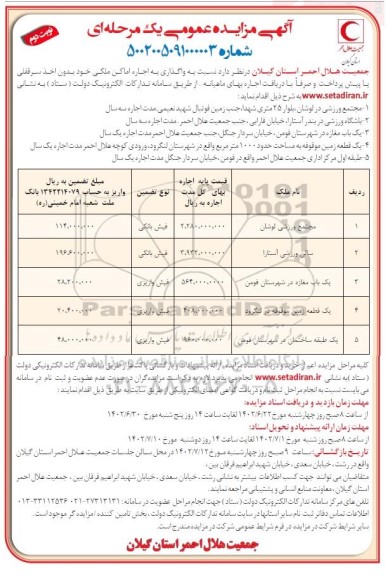 نوبت دوم
آگهی مزایده عمومی یک مرحله‌ای
شماره ۵۰۰۲۰۰۵۰۹۱۰۰۰۰۰۳
جمعیت هلال احمر
استان گیلان
جمعیت هلال احمر استان گیلان درنظر دارد نسبت به واگذاری به اجاره اماکن ملکی خود بدون اخذ سرقفلی
یا پیش پرداخت و صرفاً با دریافت اجاره بهای ماهیانه از طریق سامانه تدارکات الکترونیک دولت ( ستاد ) به نشانی
www.setadiran.ir به شرح ذیل اقدام نماید:
۱-مجتمع ورزشی در لوشان، بلوار ۲۵ متری شهدا، جنب زمین فوتبال شهید نعیمی مدت اجاره سه سال
۲-باشگاه ورزشی در بندر آستارا، خیابان فارابی، جنب جمعیت هلال احمر مدت اجاره سه سال
۳-یک باب مغازه در شهرستان فومن، خیابان سردار جنگل، جنب جمعیت هلال احمر مدت اجاره یک سال
۴-یک قطعه زمین موقوفه به مساحت حدود ۱۰۰۰ متر مربع واقع در شهرستان لنگرود، ورودی کوچه هلال احمر مدت اجاره یک سال
۵-طبقه اول مرکز اداری جمعیت هلال احمر واقع در فومن، خیابان سردار جنگل مدت اجاره یک سال
ردیف | نام ملک | قیمت پایه اجاره بهای کل مدت اجاره به ریال | نوع تضمین | مبلغ تضمین به ریال واریز به حساب ۱۳۴۲۲۱۴۰۷۹ بانک ملت شعبه امام خمینی(ره)
۱ | مجتمع ورزشی لوشان | ۲.۲۸۰.۰۰۰.۰۰۰ | فیش بانکی | ۱۱۴.۰۰۰.۰۰۰
۲ | سالن ورزشی آستارا | ۳.۹۳۲.۰۰۰.۰۰۰ | فیش بانکی | ۱۹۶.۶۰۰.۰۰۰
۳ | یک باب مغازه در شهرستان فومن | ۵۶۴.۰۰۰.۰۰۰ | فیش واریزی | ۲۸.۲۰۰.۰۰۰
۴ | یک قطعه زمین موقوفه در لنگرود | ۴۰۸.۰۰۰.۰۰۰ | فیش واریزی | ۲۰.۴۰۰.۰۰۰
۵ | یک طبقه ساختمان در شهرستان فومن | ۹۶۰.۰۰۰.۰۰۰ | فیش واریزی | ۴۸.۰۰۰.۰۰۰
کلیه مراحل مزایده اعم از خرید و دریافت اسناد مزایده، ارائه پیشنهادات و بازگشایی پاکتها از طریق سامانه تدارکات الکترونیکی دولت
( ستاد ) به نشانی www.setadiran.ir انجام می پذیرد
مهلت زمان بازدید و دریافت اسناد مزایده:
از ساعت ۸ صبح روز چهارشنبه مورخ ۱۴۰۲/۶/۲۲ لغایت ساعت ۱۴ روز پنج شنبه مورخ ۱۴۰۲/۶/۳۰
مهلت زمان ارائه پیشنهاد و تحویل اسناد:
از ساعت ۸ صبح روز شنبه مورخ ۱۴۰۲/۷/۱ لغایت ساعت ۱۴ روز دوشنبه مورخ ۱۴۰۲/۷/۱۰
تاریخ بازگشائی: ساعت ۹ صبح روز چهارشنبه مورخ ۱۴۰۲/۷/۱۲ در محل سالن جلسات جمعیت هلال احمر استان گیلان
واقع در رشت، خیابان سعدی، خیابان شهید ابراهیم فرقان بین.
متقاضیان می توانند جهت کسب اطلاعات بیشتر به نشانی رشت، خیابان سعدی، خیابان شهید ابراهیم فرقان بین ، جمعیت هلال احمر
استان گیلان، معاونت منابع انسانی و پشتیبانی مراجعه نمایند.
تلفن های مرکز سامانه تدارکات الکترونیک دولت ( ستاد ) جهت انجام مراحل عضویت در سامانه :
اطلاعات تماس دفاتر ثبت نام سایر استانها در سایت سامانه تدارکات الکترونیک دولت ، بخش تامین کننده / مزایده گر موجود است.
سایر شرایط شرکت در مزایده در فرم شرایط عمومی شرکت در مزایده مندرج است.
جمعیت هلال احمر استان گیلان